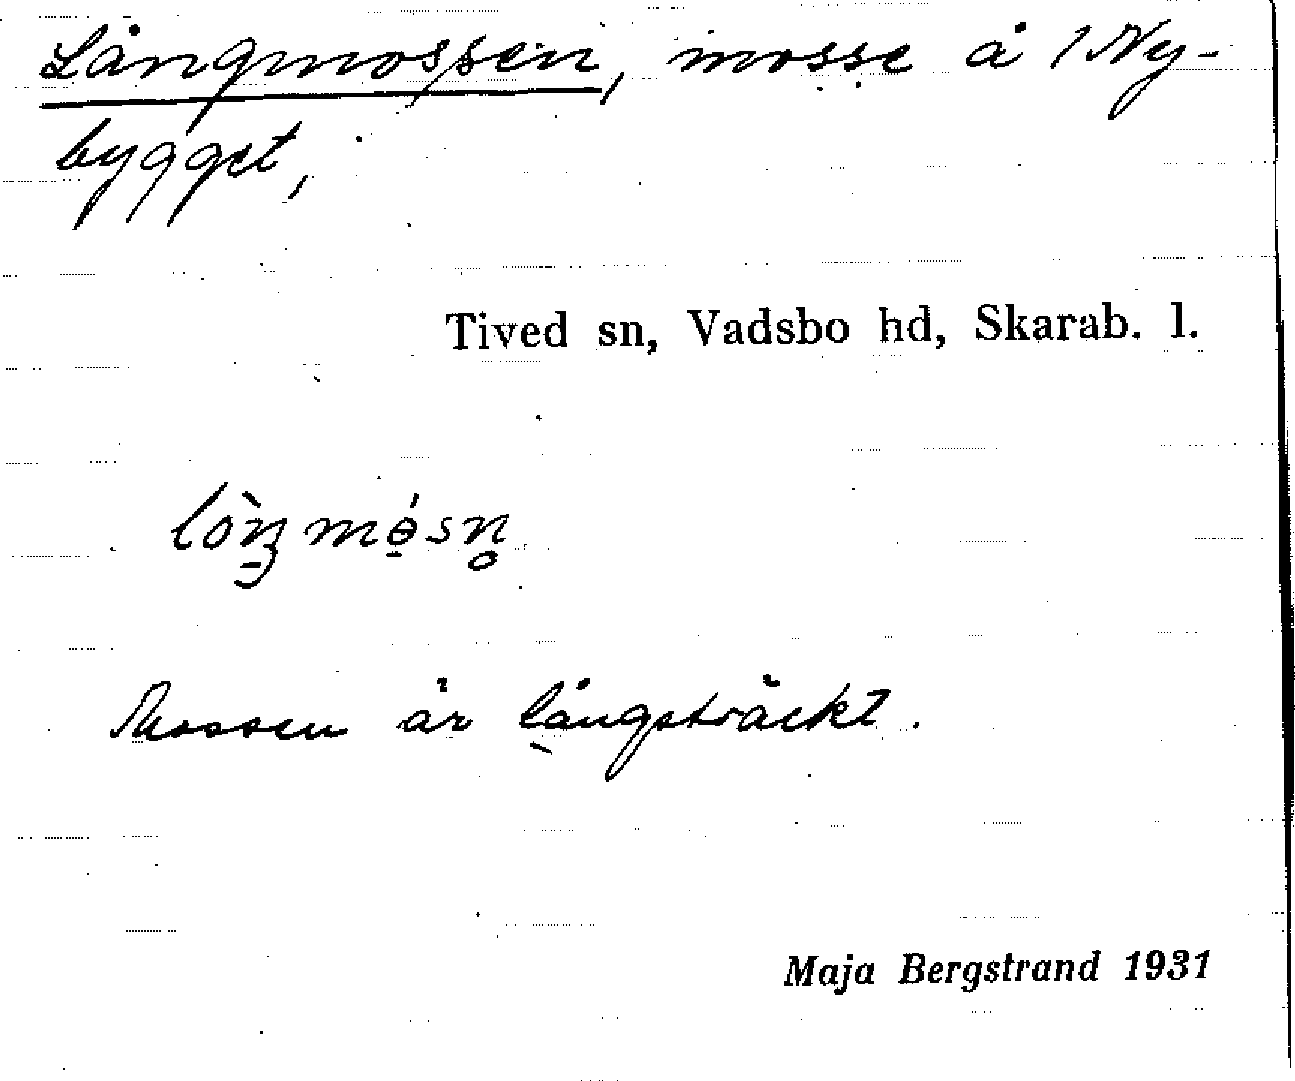 Långmossen, mosse å 1 Ny-
bygget,
Tived sn, Vadsbo hd, Skarab. l.
lòŋmɵ́sn̥
Mossen är långsträckt.
Maja Bergstrand 1931